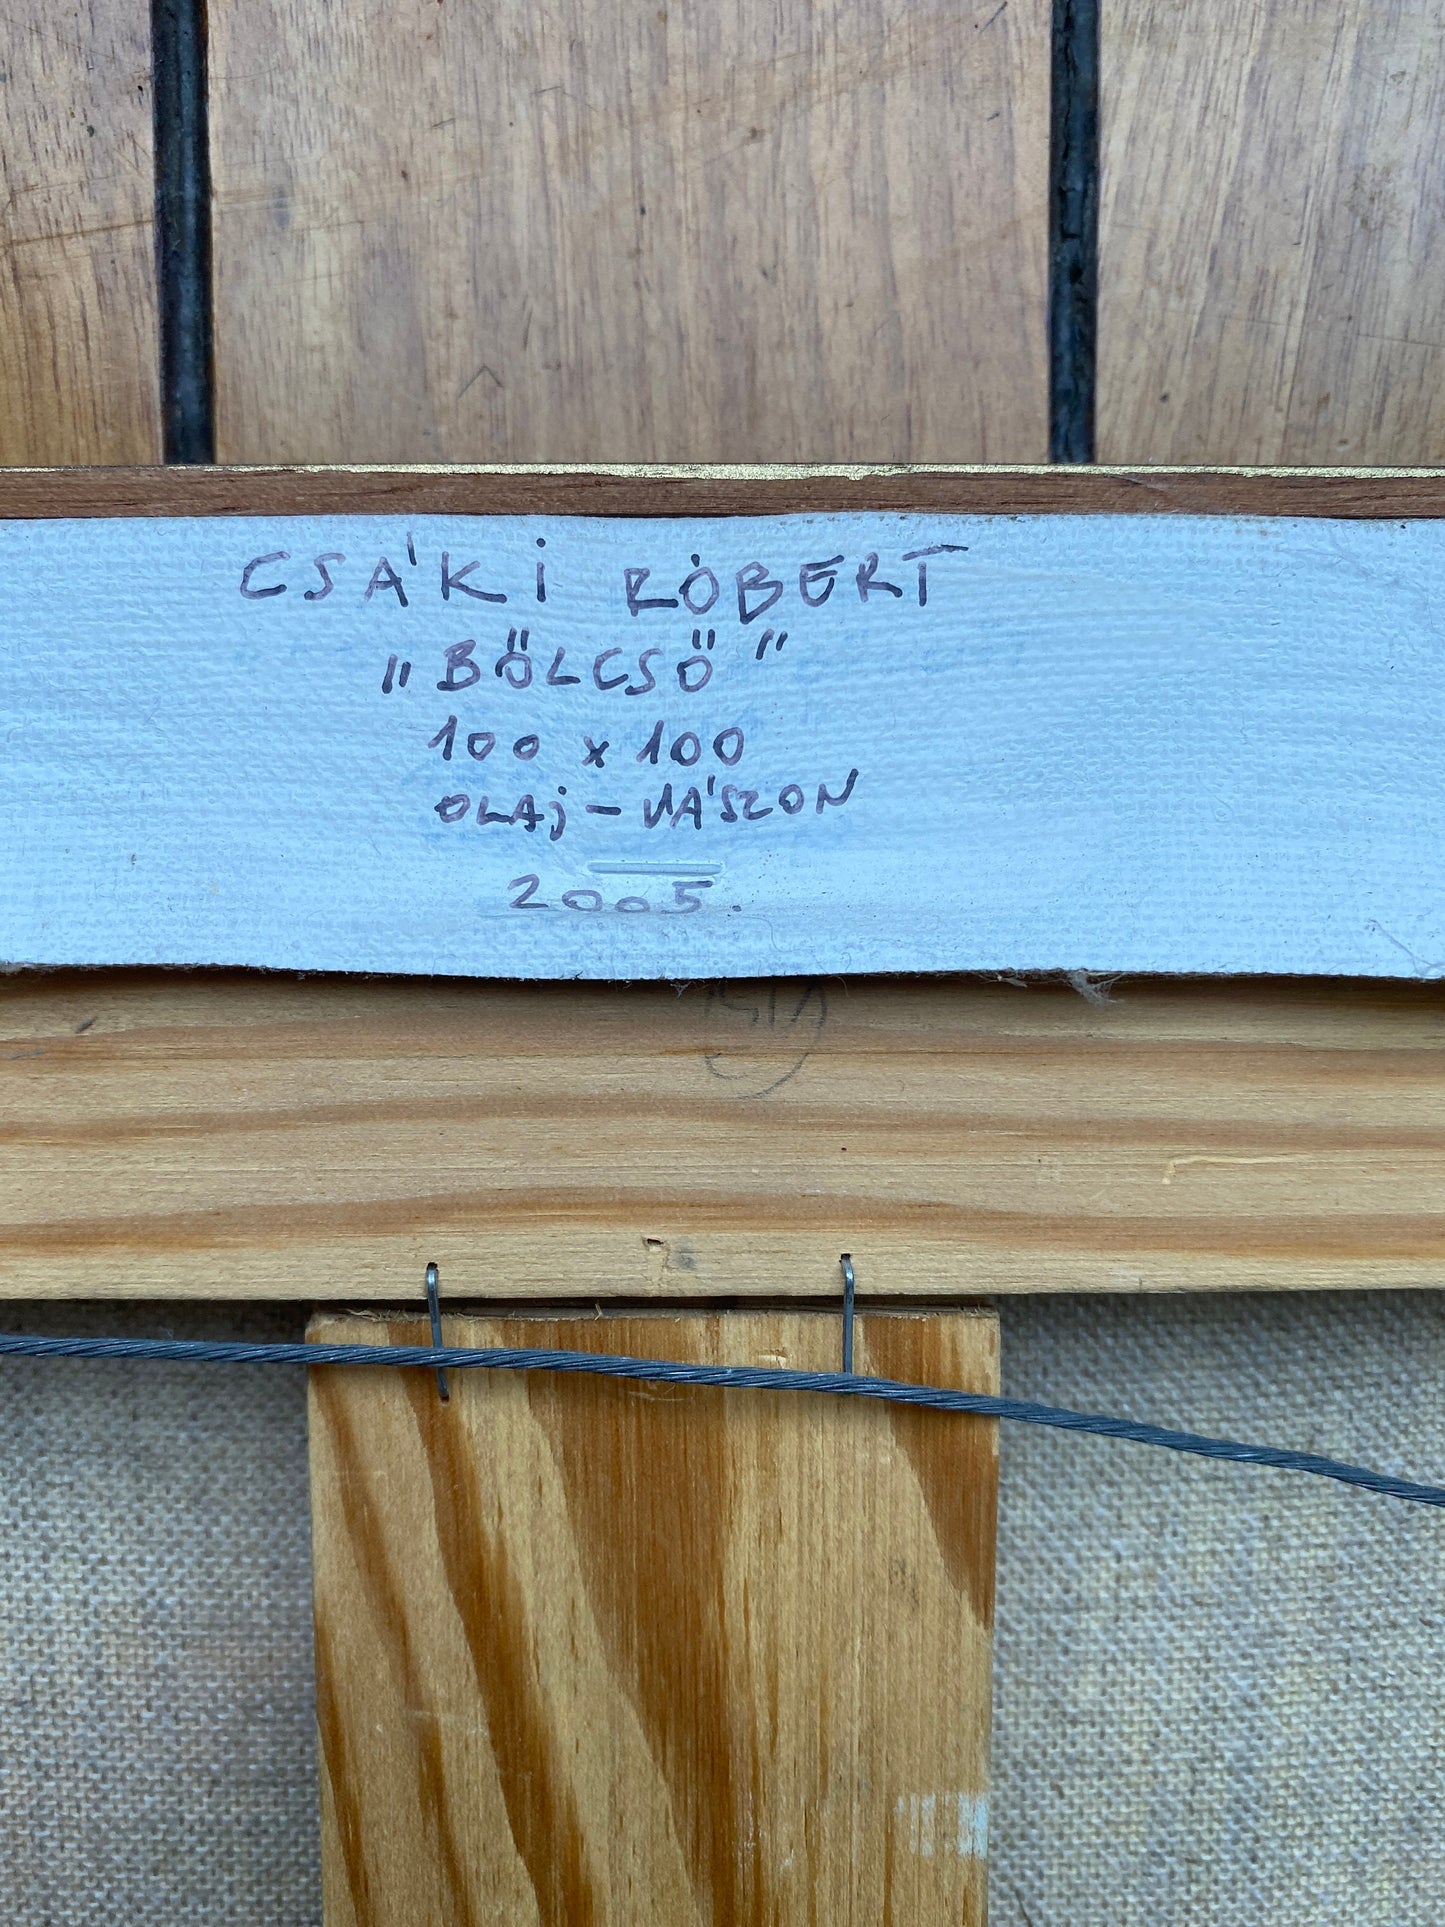 CSÁKi RÓBERT
„BÖLCSŐ”
100 x 100
OLAj - VÁSZON
2005.